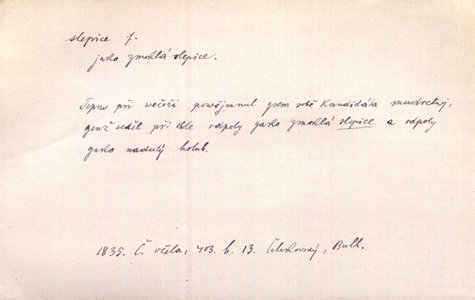 slepice f.
jako zmoklá slepice.
při večeři povšimnul jsem sobě Kandidáta mudrctví,
jenž seděl při stole odpoly jako zmoklá slepice a odpoly
jako nadutý holub.
1835. Č. včela, 403. b. 13. Čelakovský, Bulh.